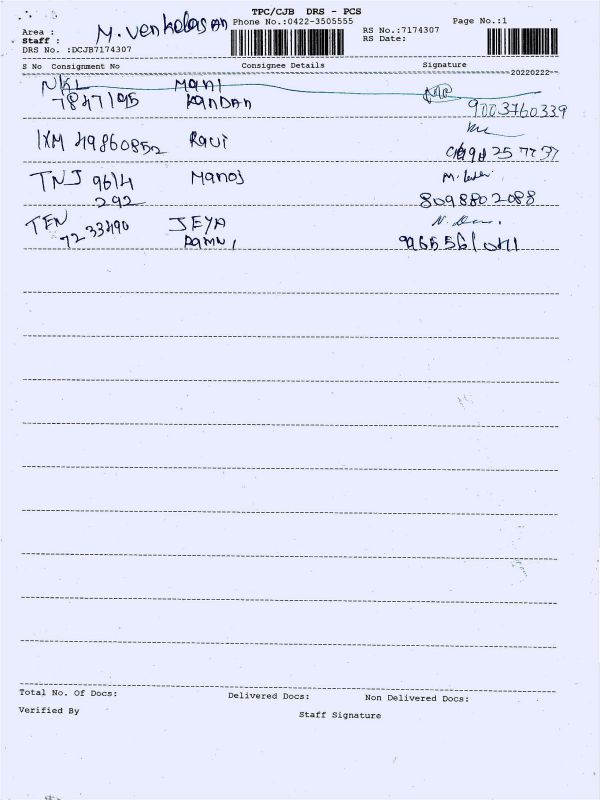 TPC/CJB DRS - PCS
Area : Phone No.:0422-3505555 Page No.:1
Staff : M. Venkelasan RS No.:7174307
DRS No. :DCJB7174307 RS Date:
S No Consignment No Consignee Details Signature
20220222
NKL Mani
7847195 KANDAN 9003760339
IXM 49860852 Ravi
TNJ 9614 Manoj
292 8098802088
TEN JEYA
7233490
Total No. Of Docs: Delivered Docs: Non Delivered Docs:
Verified By Staff Signature